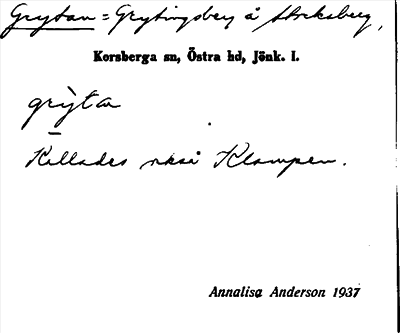 Grytan = Grytingsberg å Stocksberg,
Korsberga sn, Östra hd, Jönk. l.
grỳtan
Kallades också Klampen.
Annalisa Anderson 1937